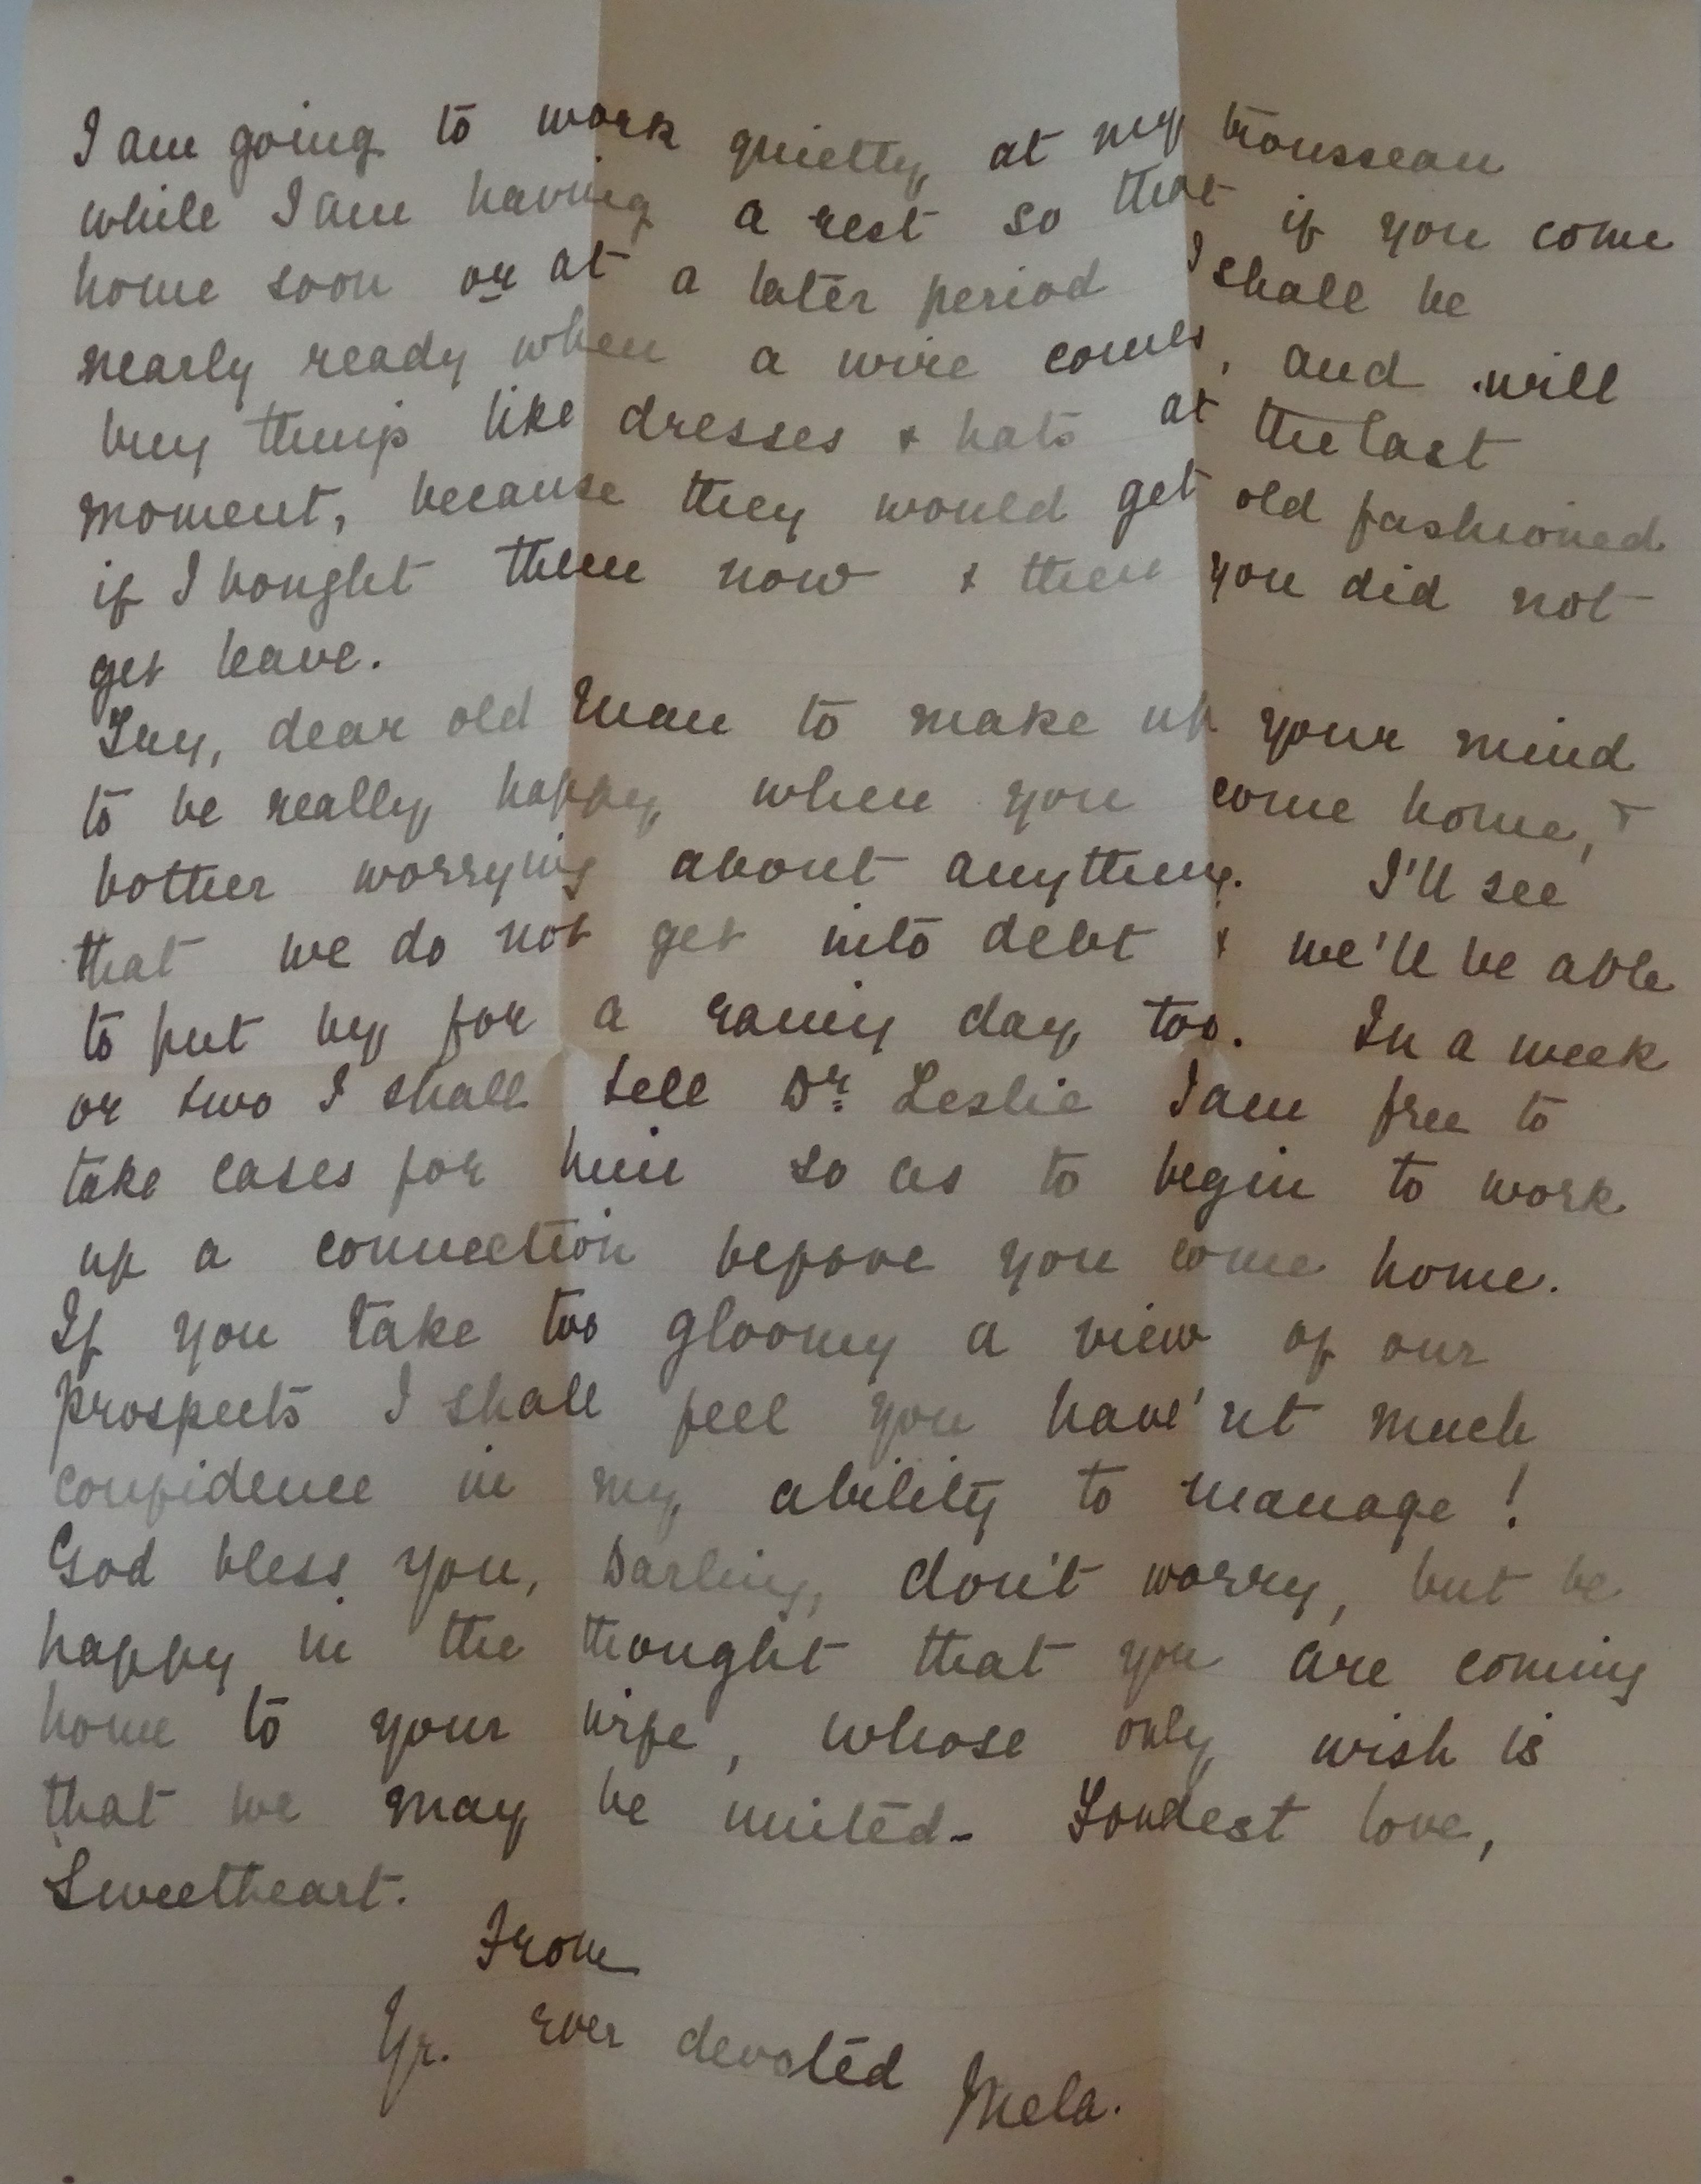 I am going to work quietly at my trousseau
while I am having a rest so that if you come
home soon or at a later period I shall be
nearly ready when a wire comes, and will
buy things like dresses & hats at the last
moment, because they would get old fashioned
if I bought them now & then you did not
get leave.
Try, dear old man to make up your mind
to be really happy when you come home,
bother worrying about anything. I'll see
that we do not get into debt & we'll be able
to put by for a rainy day too. In a week
or two I shall tell Dr. Leslie I am free to
take cases for him so as to begin to work
up a connection before you come home.
If you take too gloomy a view of our
prospects I shall feel you have'nt much
confidence in my ability to manage!
God bless you, Darling, don't worry, but be
happy in the thought that you are coming
home to your wife, whose only wish is
that we may be united- Fondest love,
Sweetheart.
From
Yr. ever devoted Mela.